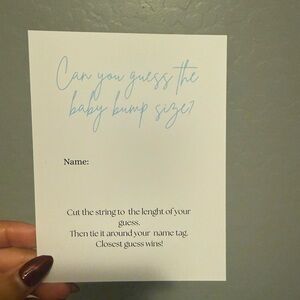 Can you guess the
baby bump size?
Name:
Cut the string to the lenght of your
guess.
Then tie it around your name tag.
Closest guess wins!